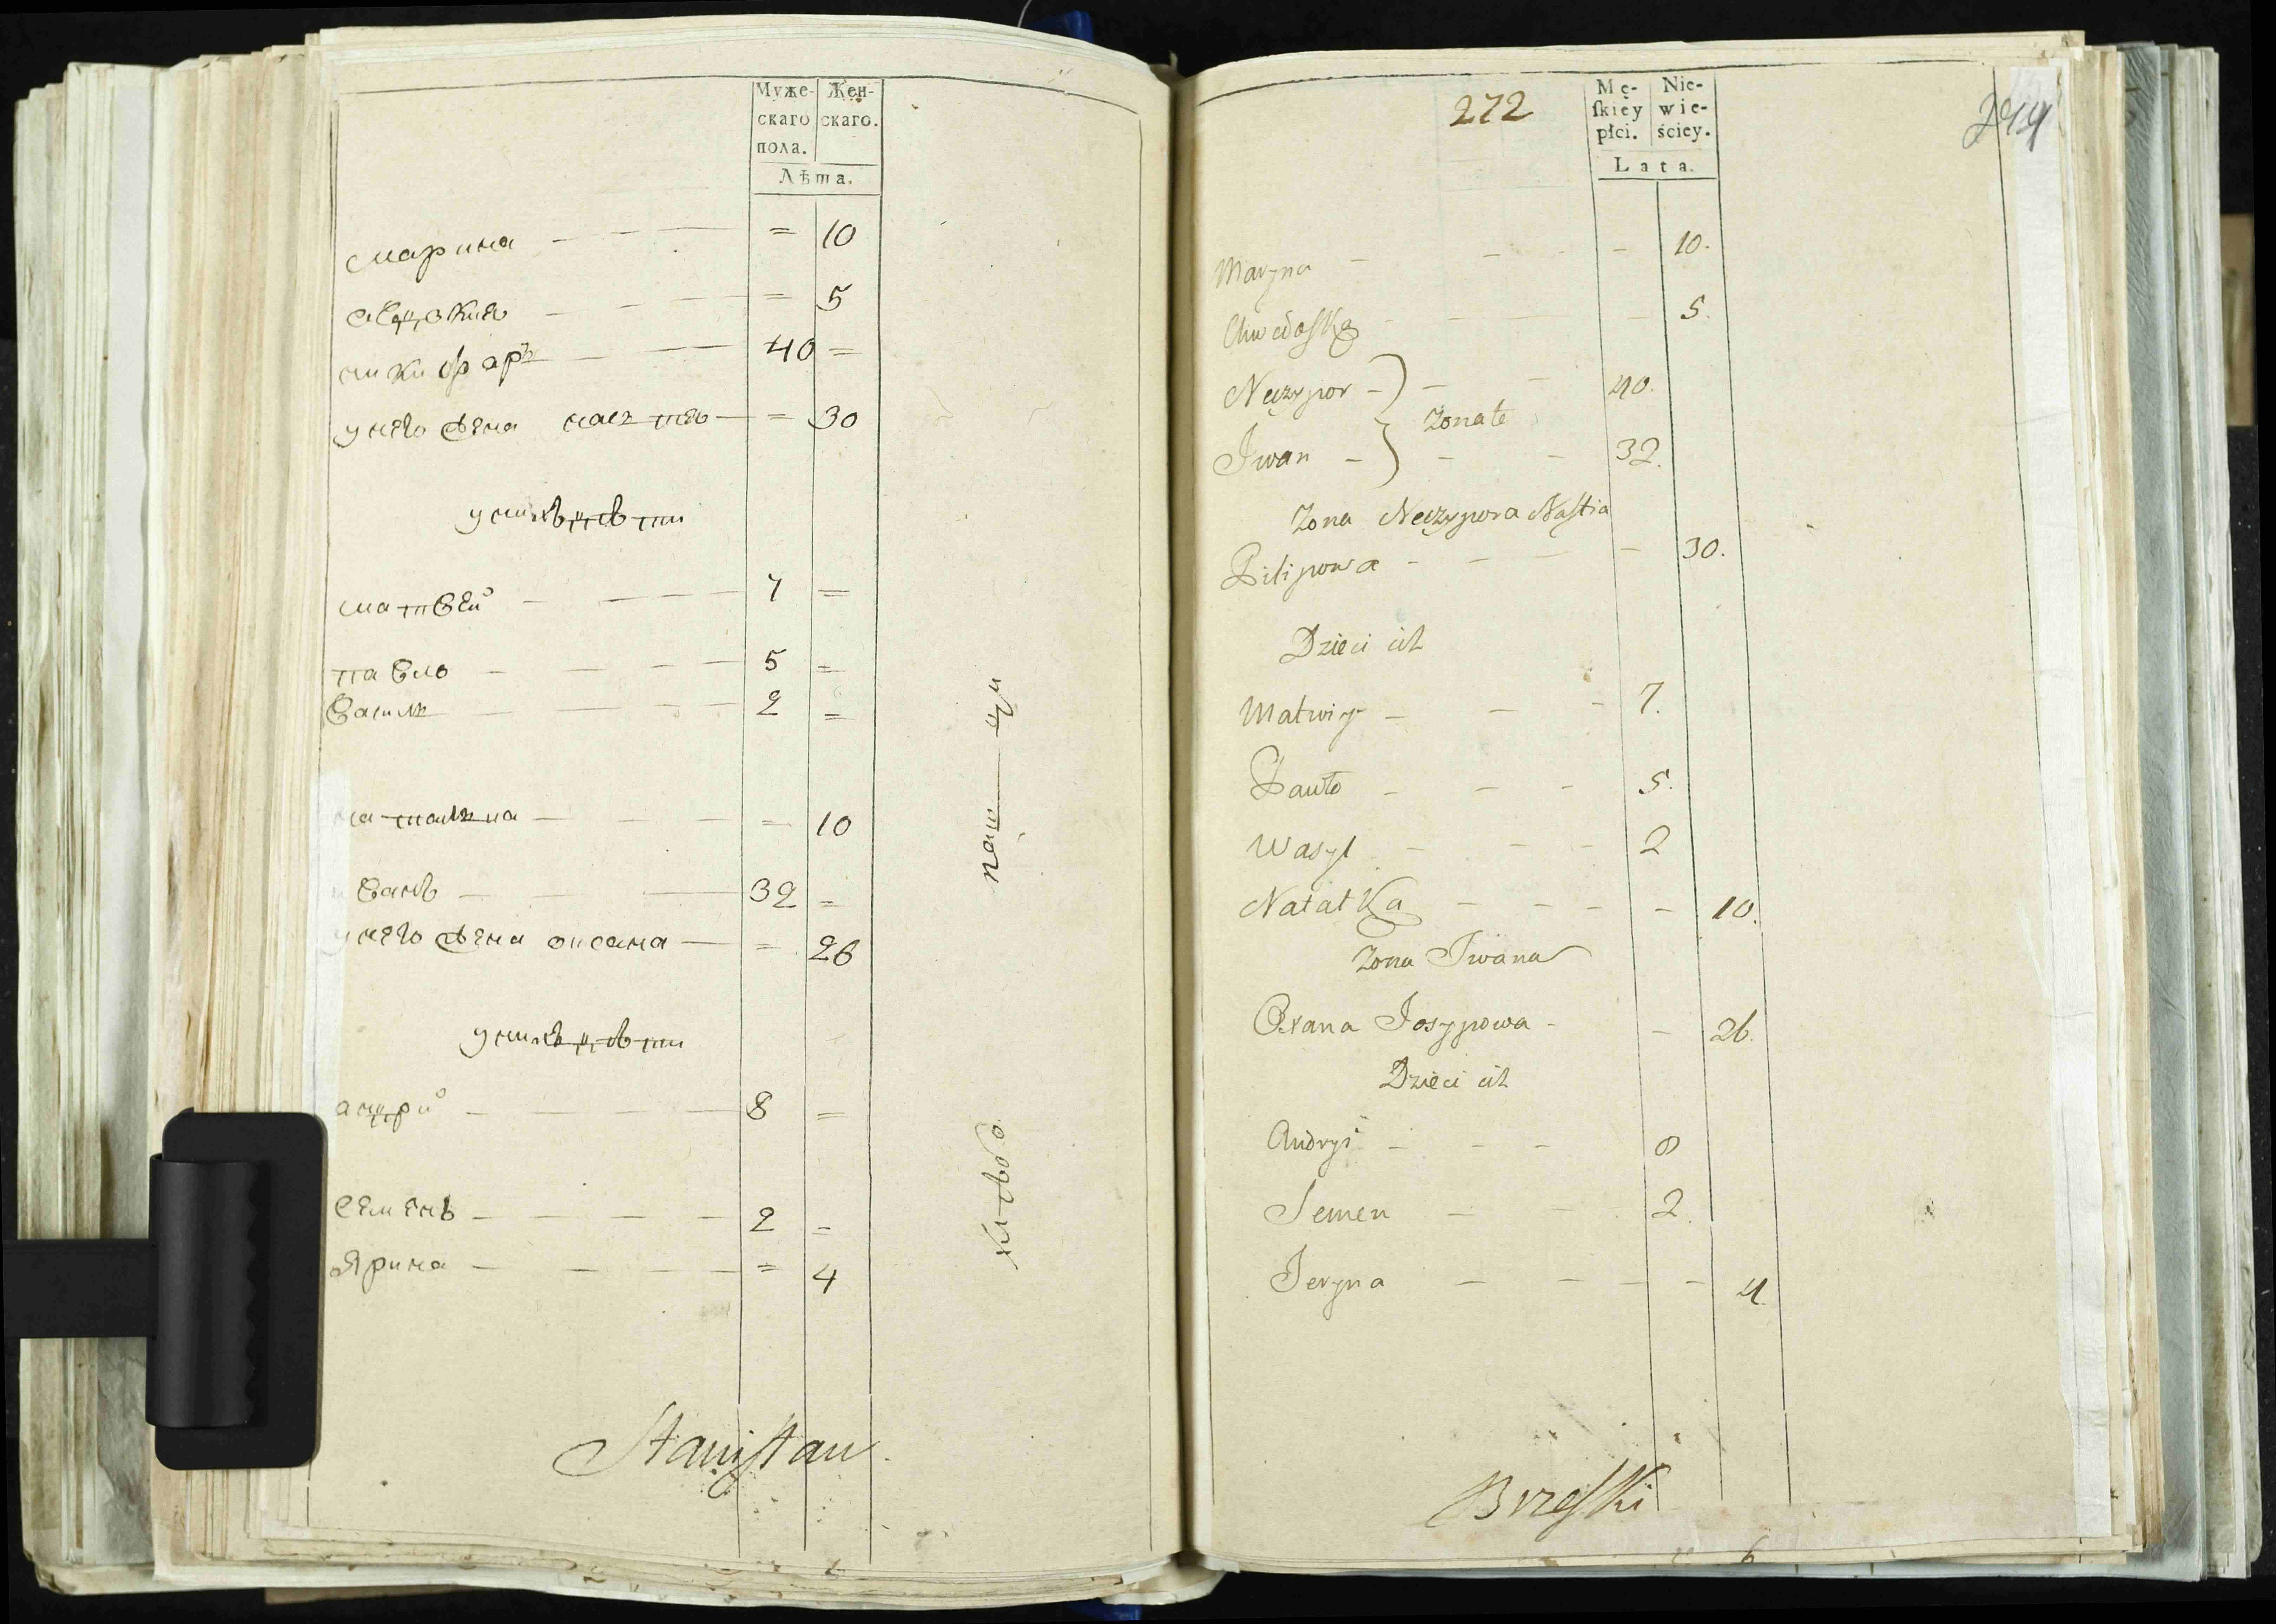 Муже- Жен-
скаго скаго.
пола.
Лѣта.
Марина — — — = 10
Авдокия — — — = 5
никифаръ — — — 40 =
у него жена настя — = 30
у них дѣти
матвей — — — — 7 =
павло — — — — 5 =
василь — — — — 2 =
наталька — — — — = 10
иванъ — — — 32 =
у него жена оксана — = 26
у них дѣти
андрий — — — — 8 =
семенъ — — — — 2 =
Ярина — — — — = 4
Staniſław
272
244
Mę- Nie-
ſkiey wie-
płci. ściey.
Lata.
Maryna — — - — 10.
Chwedoſka - — — 5.
Neczypor — } — — 40.
Zonate
Iwan — } — — 32.
Zona Neczypora Naſtia
Pilipowa - — — — 30.
Dzieci ich
Matwiy — — — 7.
Pawło — — — 5.
Wasyl — — — 2
Natałka — — — — 10.
Zona Iwana
Oxana Josypowa - — 26.
Dzieci ich
Andryi — — — 8
Semen — — 2.
Jeryna — — — — 4.
Brzeſki